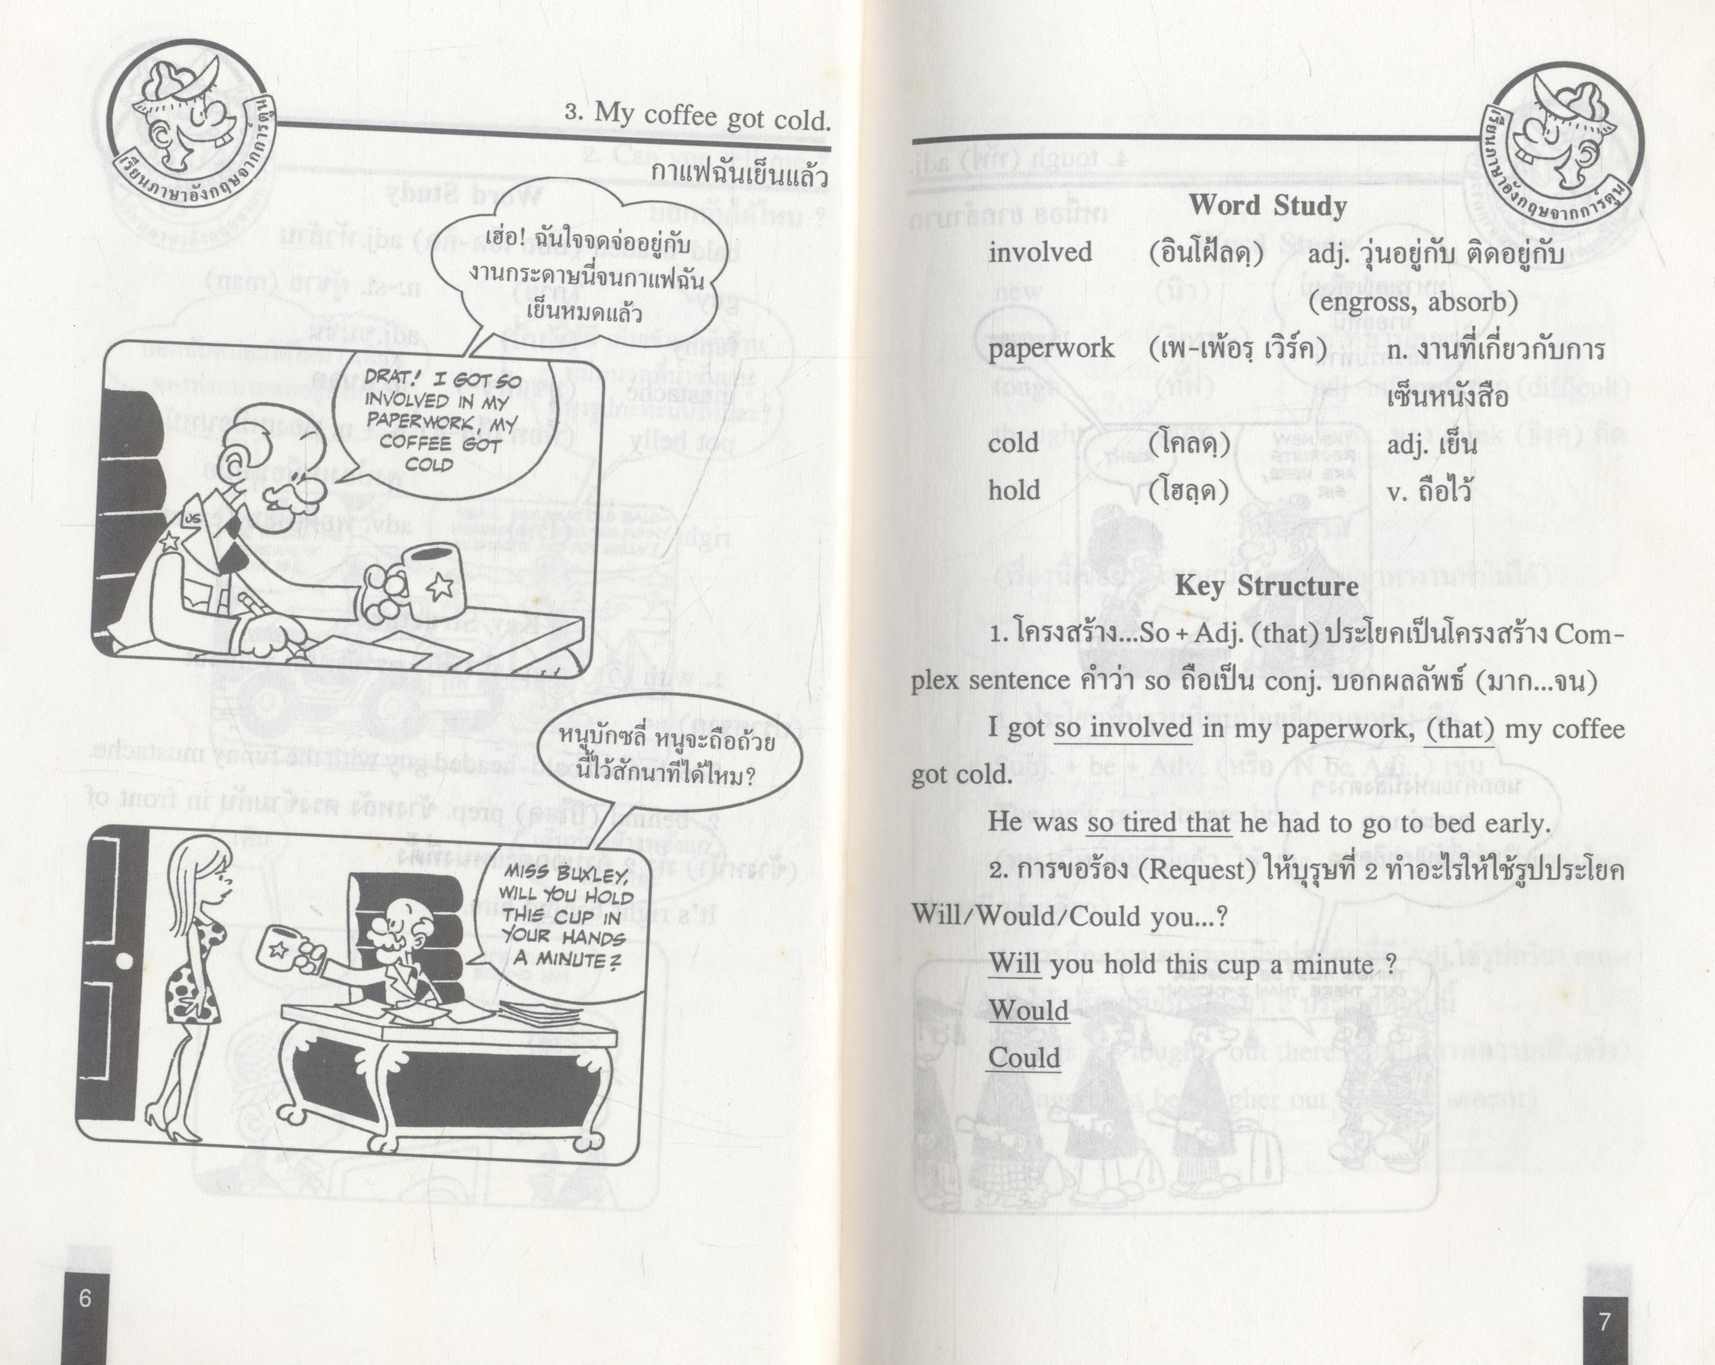 เรียนภาษาอังกฤษจากการ์ตูน
3. My coffee got cold.
กาแฟฉันเย็นแล้ว
เฮ่อ! ฉันใจจดจ่ออยู่กับ
งานกระดาษนี่จนกาแฟฉัน
เย็นหมดแล้ว
DRAT! I GOT SO
INVOLVED IN MY
PAPERWORK, MY
COFFEE GOT
COLD
US
หนูบักซลี่ หนูจะถือถ้วย
นี้ไว้สักนาทีได้ไหม?
MISS BUXLEY,
WILL YOU HOLD
THIS CUP IN
YOUR HANDS
A MINUTE?
6
เรียนภาษาอังกฤษจากการ์ตูน
Word Study
involved (อินโฝ้ลดฺ) adj. วุ่นอยู่กับ ติดอยู่กับ
(engross, absorb)
paperwork (เพ-เพ้อรฺ เวิร์ค) n. งานที่เกี่ยวกับการ
เซ็นหนังสือ
cold (โคลดฺ) adj. เย็น
hold (โฮลฺด) v. ถือไว้
Key Structure
1. โครงสร้าง...So + Adj. (that) ประโยคเป็นโครงสร้าง Com-
plex sentence คำว่า so ถือเป็น conj. บอกผลลัพธ์ (มาก...จน)
I got so involved in my paperwork, (that) my coffee
got cold.
He was so tired that he had to go to bed early.
2. การขอร้อง (Request) ให้บุรุษที่ 2 ทำอะไรให้ใช้รูปประโยค
Will/Would/Could you...?
Will you hold this cup a minute ?
Would
Could
7